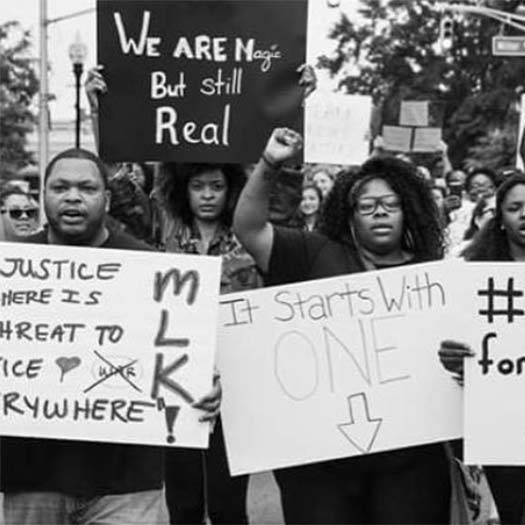 WE ARE Magic
But still
Real
JUSTICE
HERE IS
HREAT TO
ICE
RYWHERE"
MLK!
It Starts With
ONE
#
for